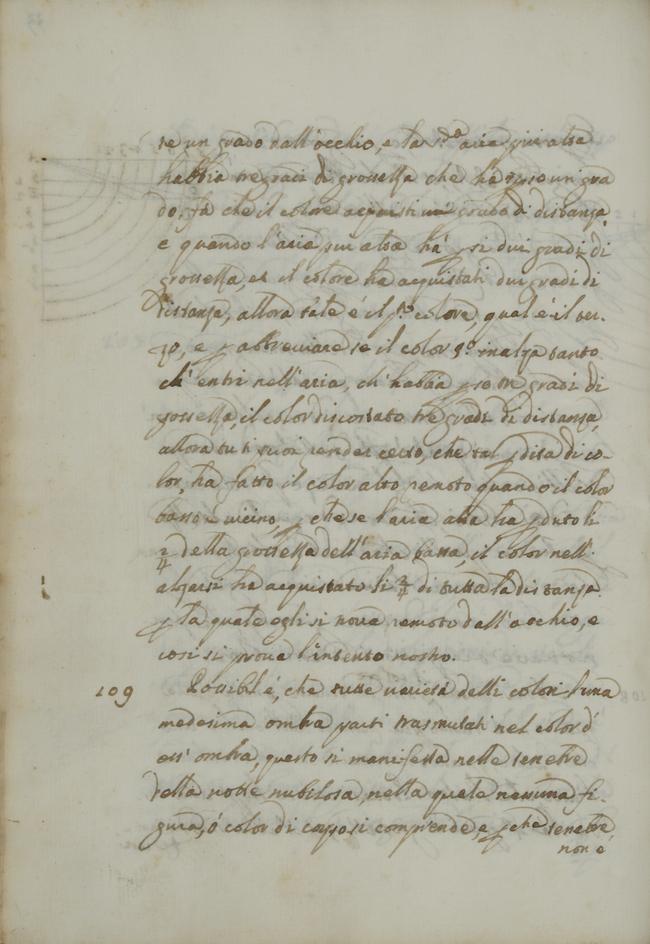 se un grado dall'occhio, e la s.da aria piu alta
habbia tre gradi di grossezza che ha perso un gra
do, fa che il colore acquisti un grado di distanza,
e quando l'aria piu alta ha psi dui gradi di
grossezza, et il colore ha acquistati dui gradi di
distanza, allora tale é il p.o colore, qual é il ter-
zo, e p abbreviare se il color p.o inalza tanto
ch' entri nell'aria, ch' habbia pso tre gradi di
grossezza, il color discostato tre gradi di distanza,
allora tu ti puoi render certo, che tal pdita di co-
lor, ha fatto il color alto remoto quando il color
basso é vicino, p che se l'aria alta ha pduto li
2/4 della grossezza dell'aria bassa, il color nell'
alzarsi ha acquistato li 3/4 di tutta la distanza
p la quale egli si trova remoto dall'occhio, e
cosi si prova l'intento nostro.
109 Possibl' é, che tutte varietá delli colori d'una
medesima ombra parti trasmutati nel color d'
ess' ombra, questo si manifesta nelle tenebre
della notte nubilosa, nella quale nessuna fi-
gura, ó color di corpo si comprende, e pche tenebre,
non é